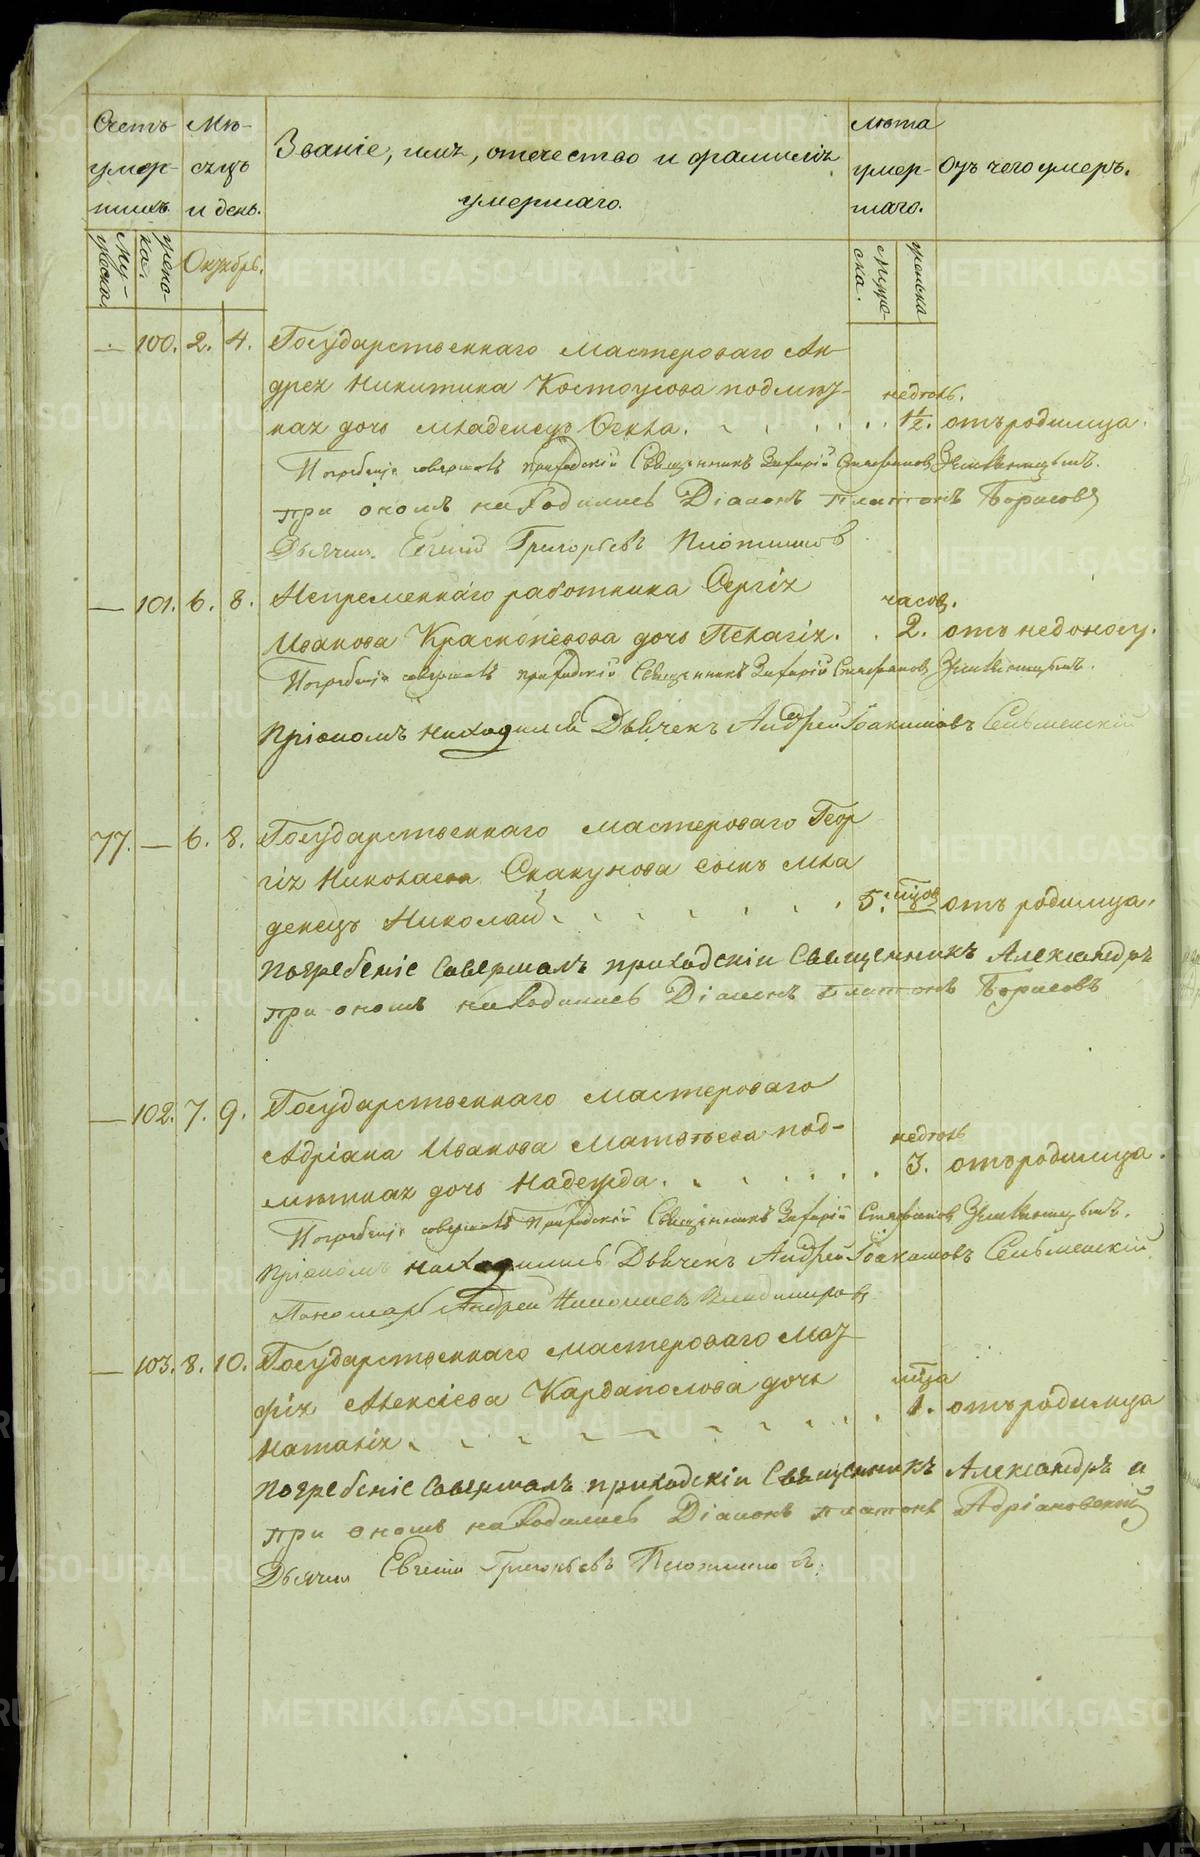 Счетъ умер-шихъ.
Мѣ-сяцъ и день.
Званіе, имя, отечество и фамилія умершаго.
лѣта умер-шаго.
Отъ чего умеръ.
Му-жеска.
женс-ка.
Октябрь.
мужес-ка.
женска
— 100. 2. 4. Государственнаго мастероваго Ан-
дрея Никитина Костоусова подмѣт-
ная дочь младенецъ Фекла. недѣль. 1½. отъ родимца.
Погребеніе совершалъ приходскій Священникъ Захарій Стефановъ Земляницынъ.
при ономъ находились Діаконъ Платонъ Борисовъ
Дьячекъ Евгеній Григорьевъ Плотниковъ
— 101. 6. 8. Непременнаго работника Сергія часов.
Иванова Красноперова дочь Пелагія. 2. отъ недоносу.
Погребеніе совершалъ приходскій Священникъ Захарій Стефановъ Земляницынъ.
При ономъ находился Дьячекъ Андрей Іоакимовъ Сельменскій
77. — 6. 8. Государственнаго мастероваго Геор
гія Николаева Скакунова сынъ мла
денецъ Николай. 5. мѣсяцов отъ родимца.
Погребеніе Совершалъ приходскій Священникъ Александръ
при ономъ находились Діаконъ Платонъ Борисовъ
— 102. 7. 9. Государственнаго мастероваго
Адріана Иванова Матвѣева под- недѣль
мѣтная дочь Надежда. 3. отъ родимца.
Погребеніе совершалъ Приходскій Священникъ Захарій Стефановъ Земляницынъ.
При ономъ находились Дьячекъ Андрей Іоакимовъ Сельменскій
Пономарь Андрей Николаевъ Владимировъ
— 103. 8. 10. Государственнаго мастероваго Мат
фія Алексіева Кардаполова дочь мѣсяца
Наталія. 1. отъ родимца
Погребеніе Совершалъ приходскій Священникъ Александръ
при ономъ находились Діаконъ Платонъ Адріановскій
Дьячекъ Евгеній Григорьевъ Плотниковъ.
METRIKI.GASO-URAL.RU